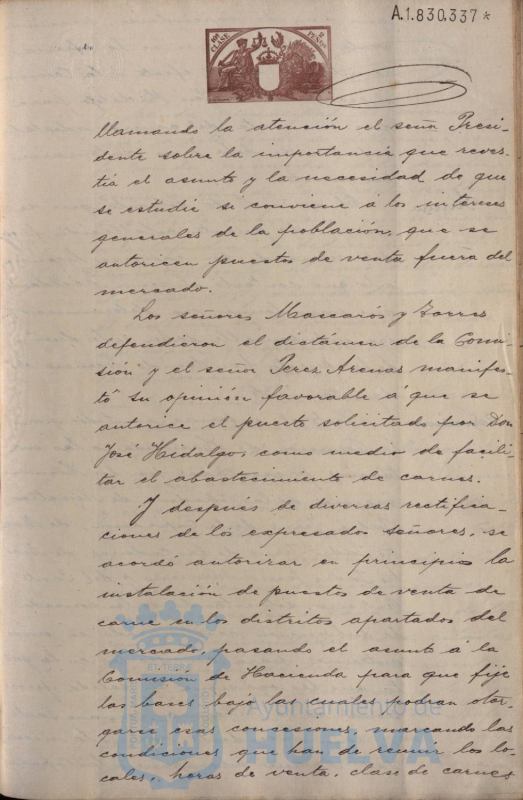 A.1.830.337*
10ª CLASE
2 PESETAS
llamando la atención el señor Presi-
dente sobre la importancia que reves-
tía el asunto y la necesidad de que
se estudie si conviene á los intereses
generales de la población, que se
autoricen puestos de venta fuera del
mercado.
Los señores Mascarós y Torres
defendieron el dictámen de la Comi-
sión y el señor Perez Arenas manifes-
tó su opinión favorable á que se
autorice el puesto solicitado por Don
José Hidalgo, como medio de facili-
tar el abastecimiento de carnes.
Y después de diversas rectifica-
ciones de los expresados señores, se
acordó autorizar en principio la
instalación de puestos de venta de
carne en los distritos apartados del
mercado, pasando el asunto á la
Comisión de Hacienda para que fije
las bases bajo las cuales podran otor-
garse esas concesiones, marcando las
condiciones que han de reunir los lo-
cales, horas de venta, clase de carnes
Ayuntamiento de
HUELVA